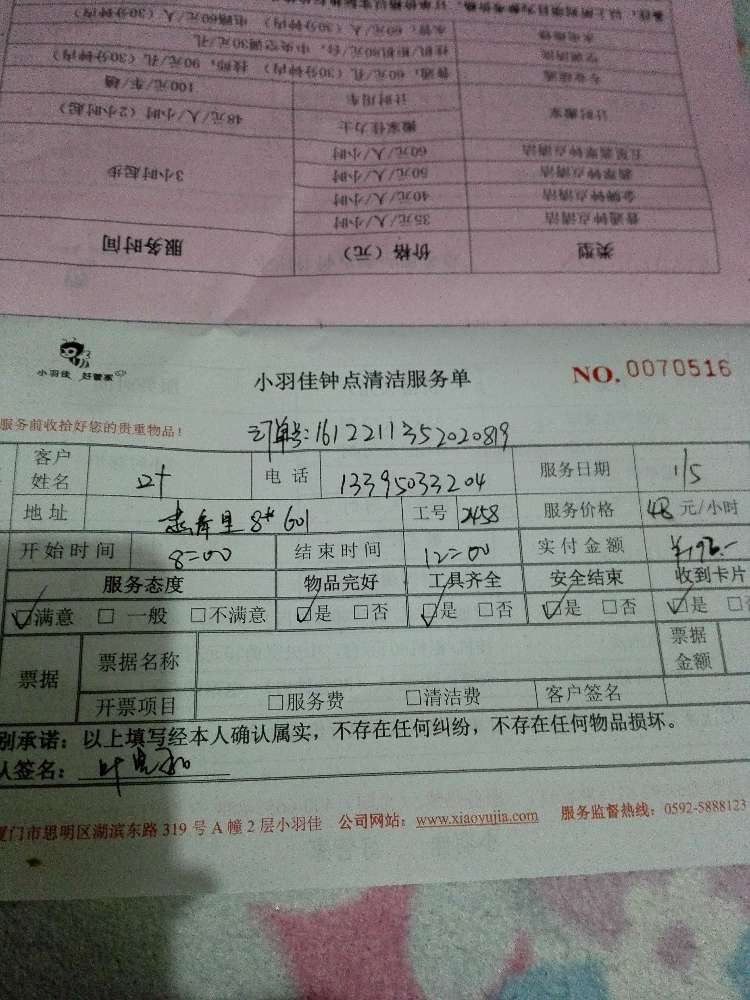 备注：以上所列项目为参考价格，订单价格以实
水电维修 水管：60元/人（30分钟内） 电路60元/人（30分钟内）
空调清洗 挂机/柜机80元/台，中央空调30元/孔
专业疏通 普通：60元/孔（30分钟内） 技师：90元/孔（30分钟内）
计时搬家 计时用车 100元/车/趟
搬家佳力士 48元/人/小时（2小时起）
五星翡翠钟点清洁 60元/人/小时
翡翠钟点清洁 50元/人/小时 3小时起步
金牌钟点清洁 40元/人/小时
普通钟点清洁 35元/人/小时
类型 价格（元） 服务时间
小羽佳 好管家
小羽佳钟点清洁服务单 NO. 0070516
服务前收拾好您的贵重物品！
订单号：1612211352020819
客户姓名 叶 电话 13395033204 服务日期 1/5
地址 8# 601 工号 2458 服务价格 48 元/小时
开始时间 8=00 结束时间 12=00 实付金额 ¥192.-
服务态度 物品完好 工具齐全 安全结束 收到卡片
☑满意 □ 一般 □不满意 ☑是 □否 ☑是 □否 ☑是 □否 ☑是 □
票据 票据名称 票据金额
开票项目 □服务费 □清洁费 客户签名
别承诺：以上填写经本人确认属实，不存在任何纠纷，不存在任何物品损坏。
人签名：叶
厦门市思明区湖滨东路 319 号 A 幢 2 层小羽佳 公司网站：www.xiaoyujia.com 服务监督热线：0592-5888123